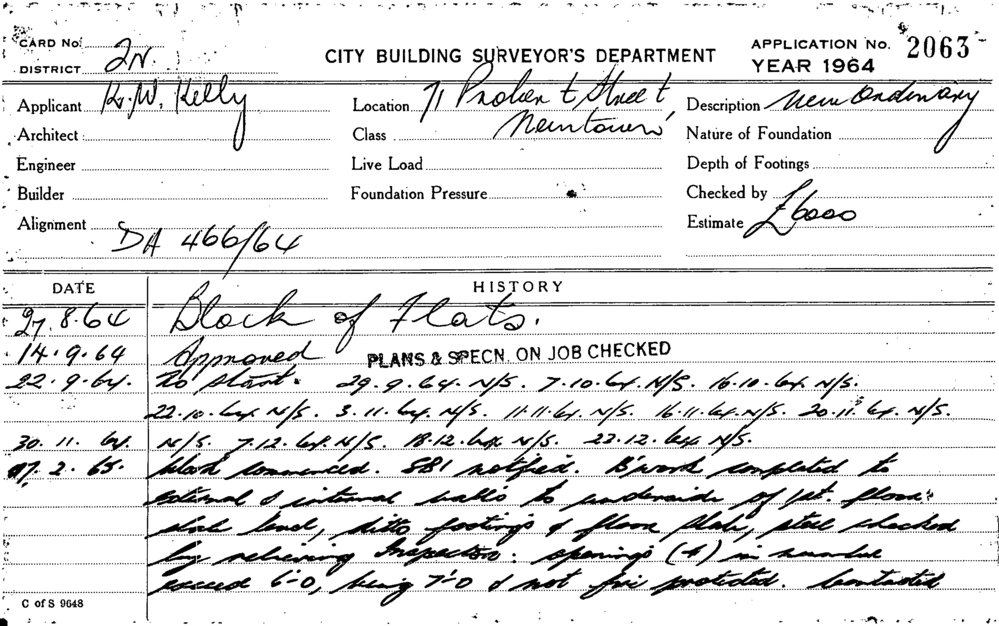 CARD No. 2N.
DISTRICT
CITY BUILDING SURVEYOR'S DEPARTMENT
APPLICATION No. 2063
YEAR 1964
Applicant R.W. Kelly
Location 71 Probert Street,
Newtown
Description New Ordinary
Architect
Class
Nature of Foundation
Engineer
Live Load
Depth of Footings
Builder
Foundation Pressure
Checked by
Alignment
Estimate £6000
DA 466/64
DATE
HISTORY
27.8.64 Block of Flats.
14.9.64 Approved PLANS & SPECN. ON JOB CHECKED
22.9.64. No start. 29.9.64. N/S. 7.10.64. N/S. 16.10.64. N/S.
22.10.64. N/S. 3.11.64. N/S. 11.11.64. N/S. 16.11.64. N/S. 20.11.64. N/S.
30.11.64. N/S. 7.12.64. N/S. 18.12.64 N/S. 23.12.64 N/S.
17.2.65. Work commenced. 581 notified. B'work completed to
external & internal walls to underside of 1st. floor
slab level, ditto footings & floor slab, steel checked
by relieving Inspector. openings (4) in number
exceed 6'-0, being 7'-0 & not fire protected. Contacted
C of S 9648